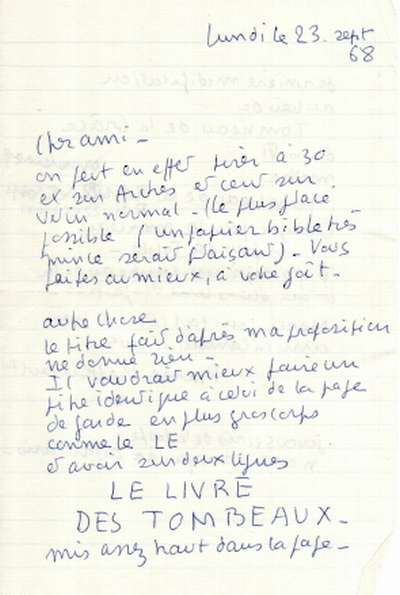 lundi le 23. sept
68
Cher ami -
on peut en effet tirer à 30
ex sur Arches et cent sur
vélin normal - (le plus glacé
possible (un papier bible très
mince serait plaisant) - Vous
faites au mieux, à votre goût -
autre chose
le titre fait d'après ma proposition
ne donne rien -
Il vaudrait mieux faire un
titre identique à celui de la page
de garde en plus gros corps
comme le LE
et avoir sur deux lignes
LE LIVRE
DES TOMBEAUX -
mis assez haut dans la page -